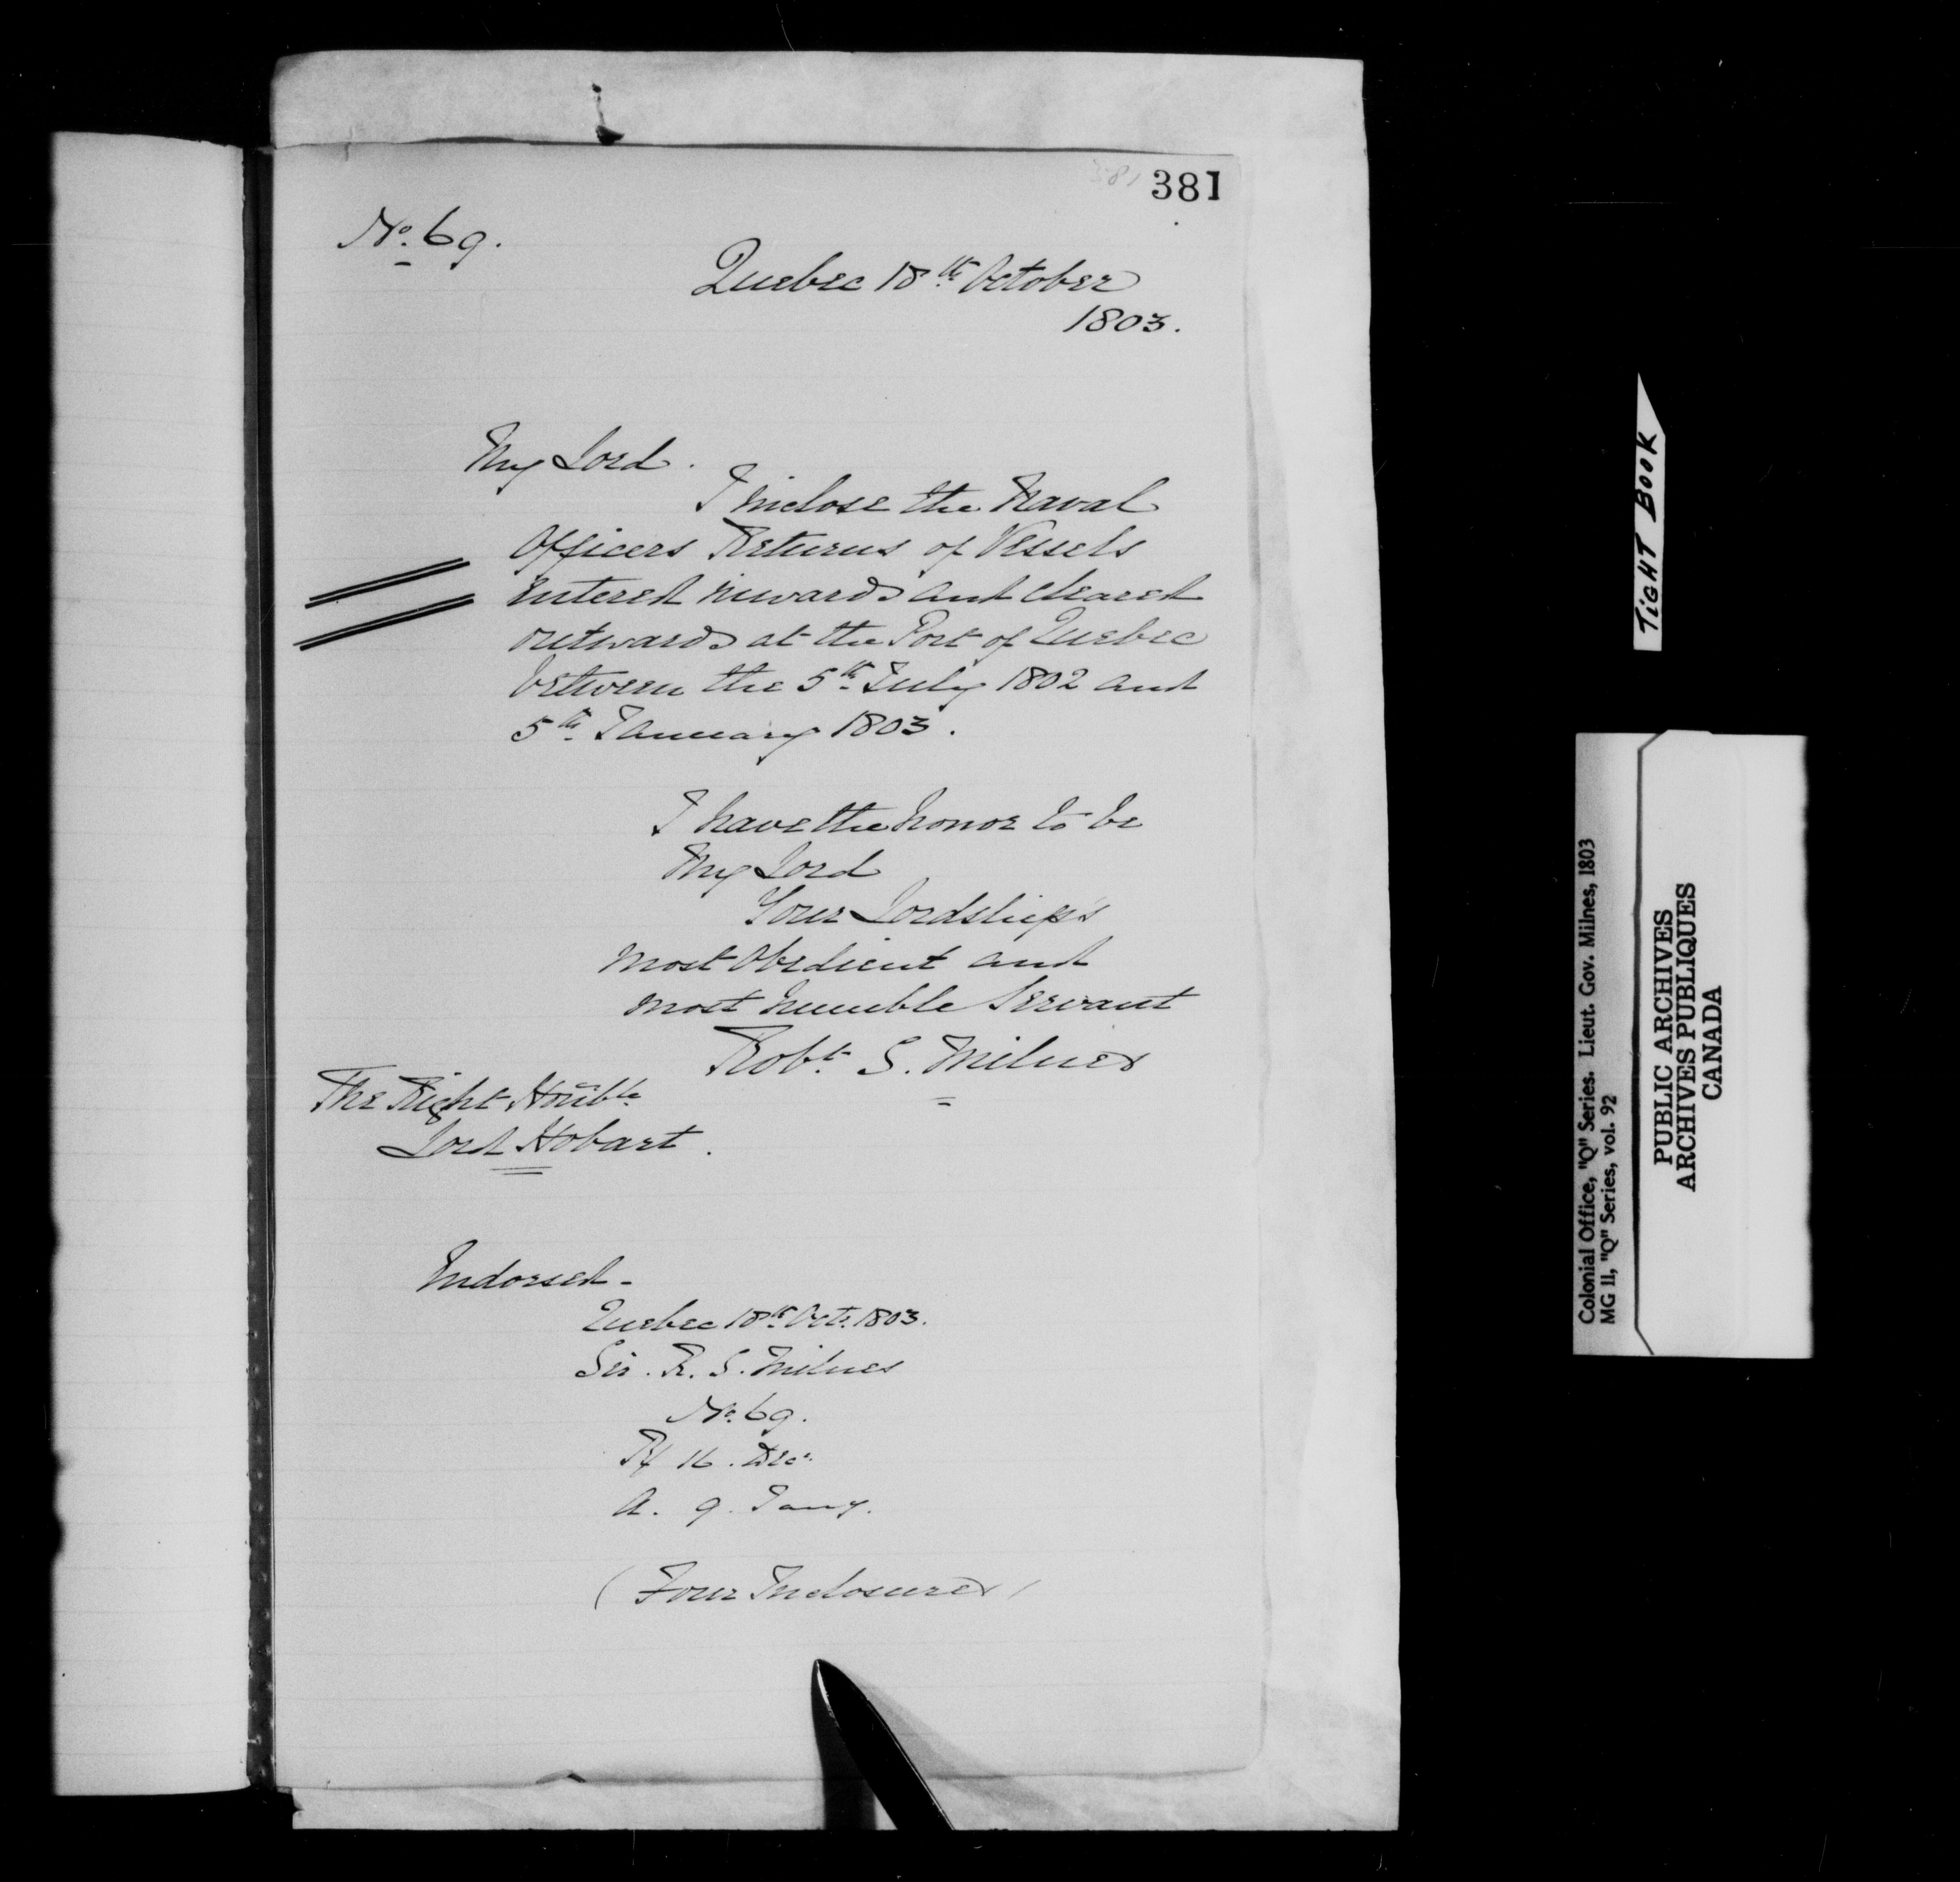 381
381
No. 69.
Quebec 18th October
1803.
My Lord.
I inclose the Naval
Officers Returns of Vessels
entered inwards and cleared
outwards at the Port of Quebec
between the 5th July 1802 and
5th January 1803.
I have the honor to be
My Lord
Your Lordship's
most obedient and
most humble Servant
Robt. S. Milnes
The Right Honble
Lord Hobart.
Indorsed -
Quebec 18th Octr. 1803.
Sir. R. S. Milnes
No. 69.
Rf 16. Decr.
A. 9. Jany.
(Four Inclosures)
TIGHT BOOK
Colonial Office, "Q" Series. Lieut. Gov. Milnes, 1803
MG 11, "Q" Series, vol. 92
PUBLIC ARCHIVES
ARCHIVES PUBLIQUES
CANADA